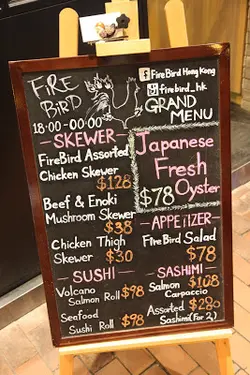 FiRE
BiRD
18:00-00:00
FireBird Hong Kong
firebird_hk
GRAND
MENU
SKEWER
FireBird Assorted
Chicken Skewer
$128
Beef & Enoki
Mushroom Skewer
$38
Chicken Thigh
Skewer $30
SUSHI
Volcano
Salmon Roll $98
Seafood
Sushi Roll $98
Japanese
Fresh
$78 Oyster
APPETIZER
FireBird Salad
$78
SASHIMI
Salmon $108
Carpaccio
Assorted $280
Sashimi (For 2)